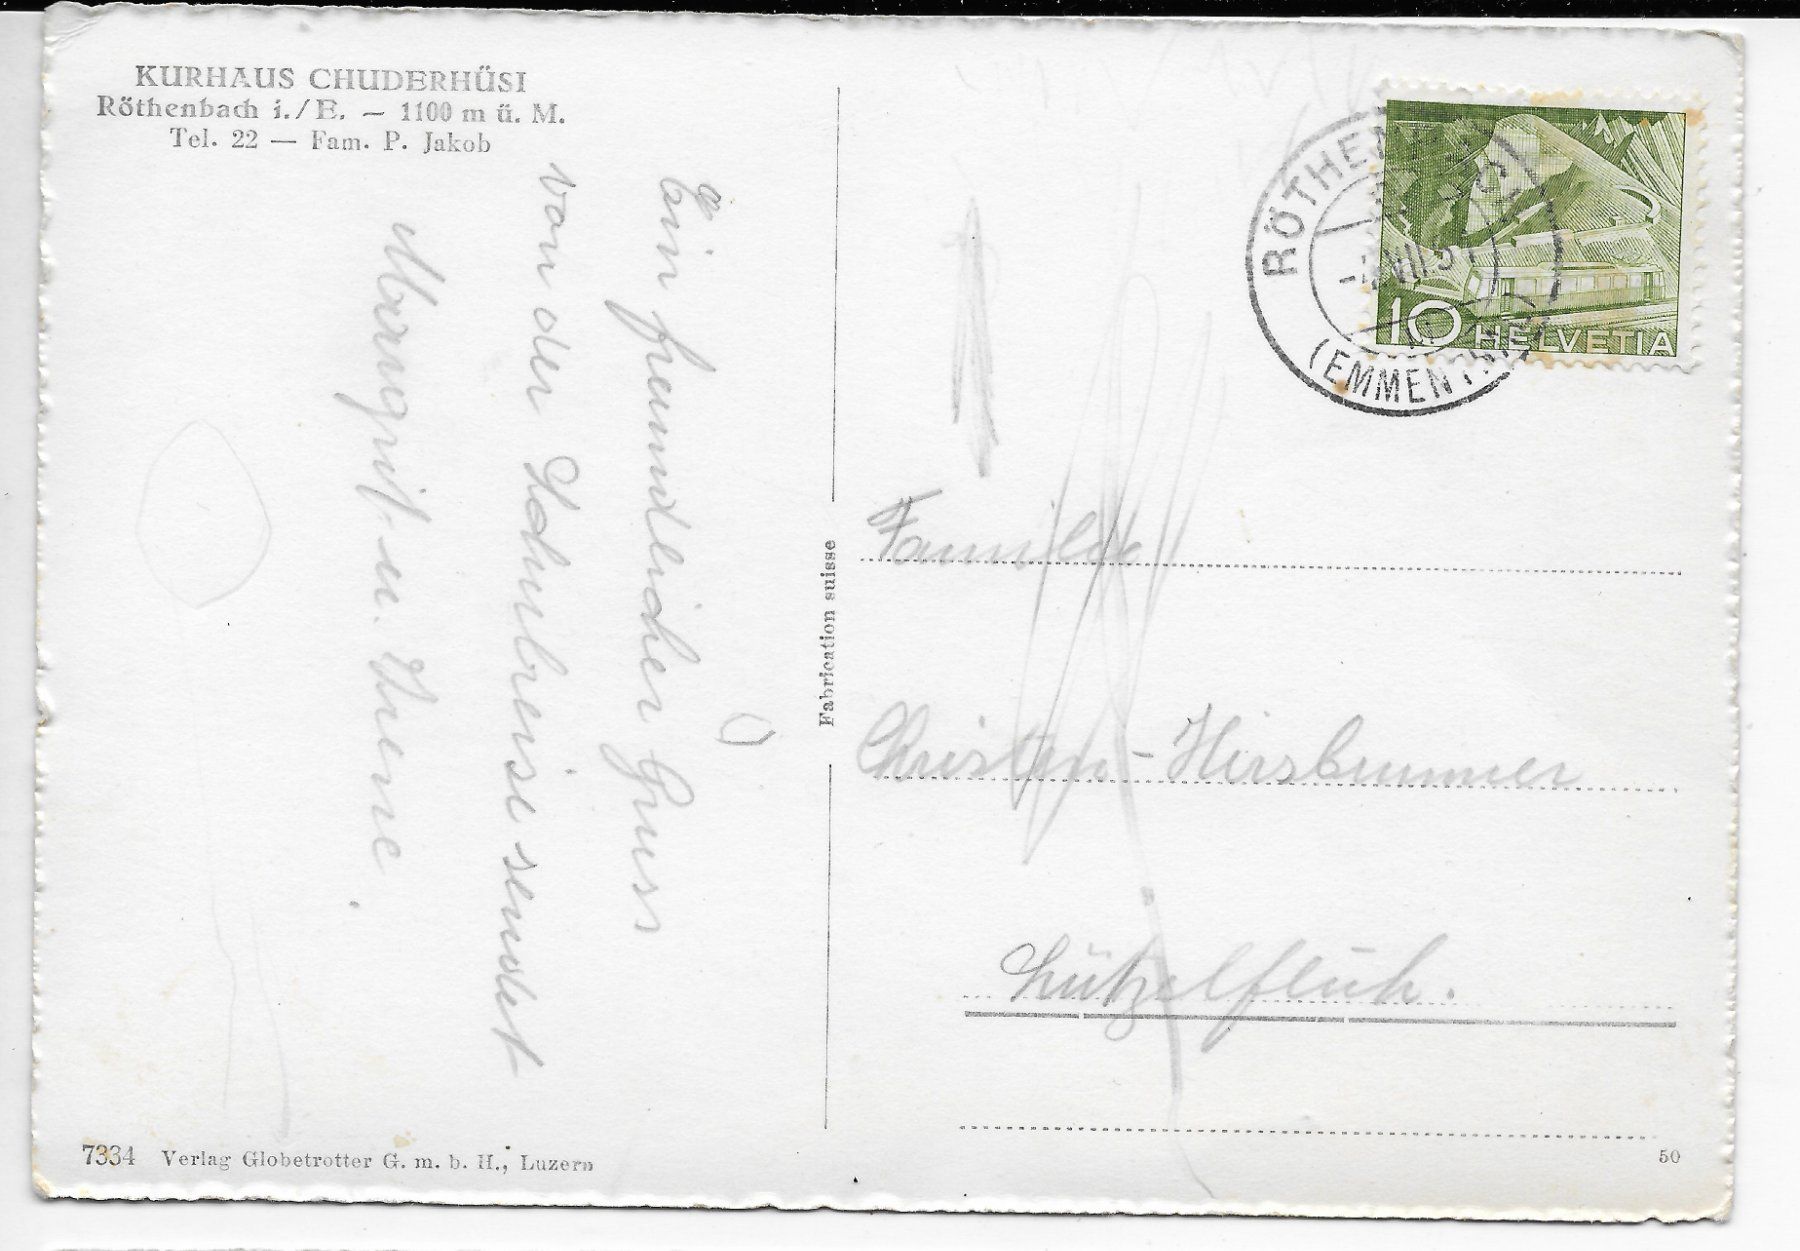 KURHAUS CHUDERHÜSI
Röthenbach i./E. — 1100 m ü. M.
Tel. 22 — Fam. P. Jakob
Ein freundlicher Gruss
von der Schulreise sendet
Margrit u. Irene.
Fabrication suisse
10 HELVETIA
RÖTHENBACH
VII.5
(EMMENTAL)
Familie
Christen-Hirsbrunner
Lützelflüh.
7334 Verlag Globetrotter G. m. b. H., Luzern
50